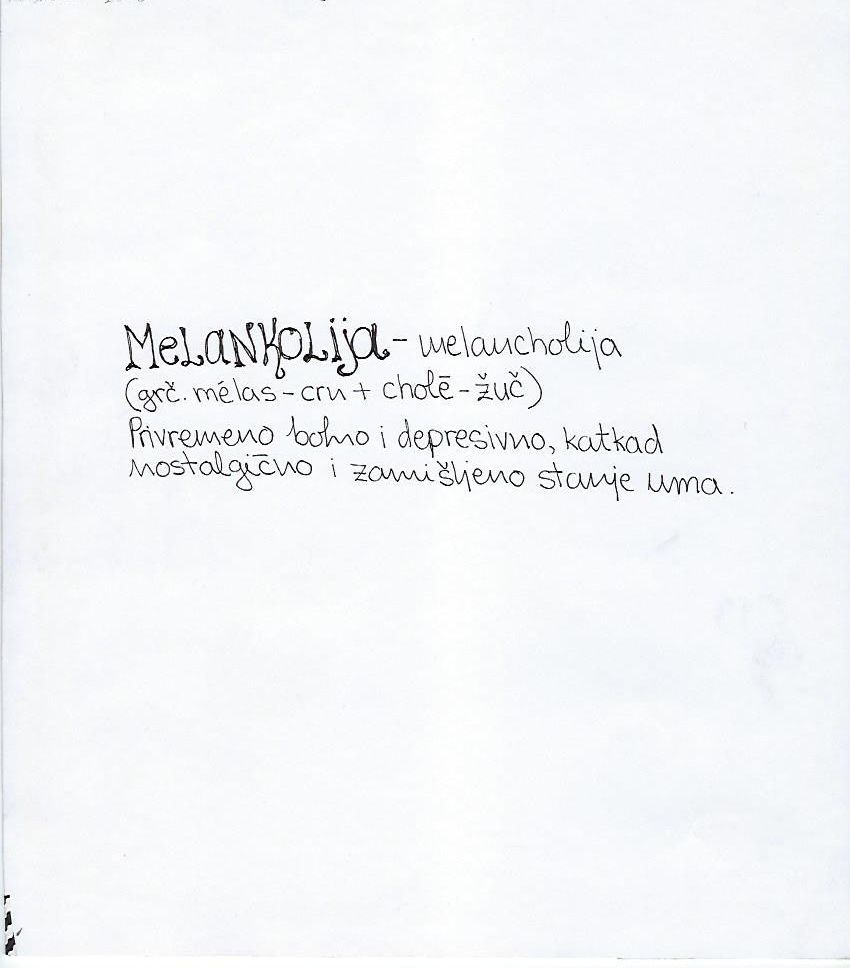 MeLaNKOLija - melancholija
(grč. mélas - crn + cholē - žuč)
Privremeno bolno i depresivno, katkad
nostalgično i zamišljeno stanje uma.